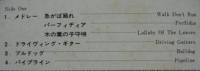 Side One
1. メドレー 急がば廻れ Walk Don't Run
パーフィディア Perfidia
木の葉の子守唄 Lullaby Of The Leaves
2. ドライヴィング・ギター Driving Guitars
3. ブルドッグ Bulldog
4. パイプライン Pipeline